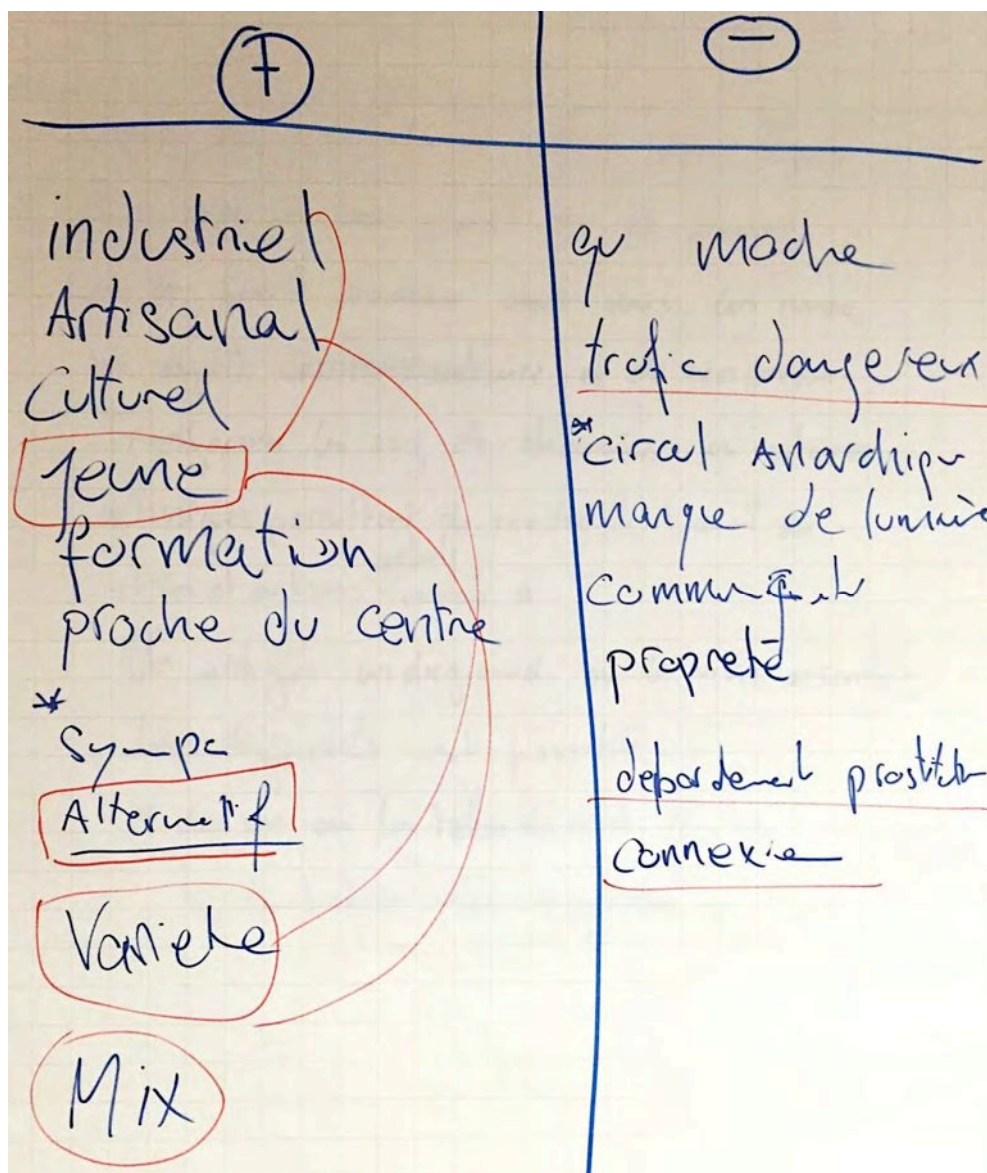 +
industriel
Artisanal
Culturel
jeune
formation
proche du centre
*
Sympa
Alternatif
Variete
Mix
−
qu moche
trafic dangereux
*circul Anarchiqu
manque de lumière
propreté
debordement prostitution
connexion